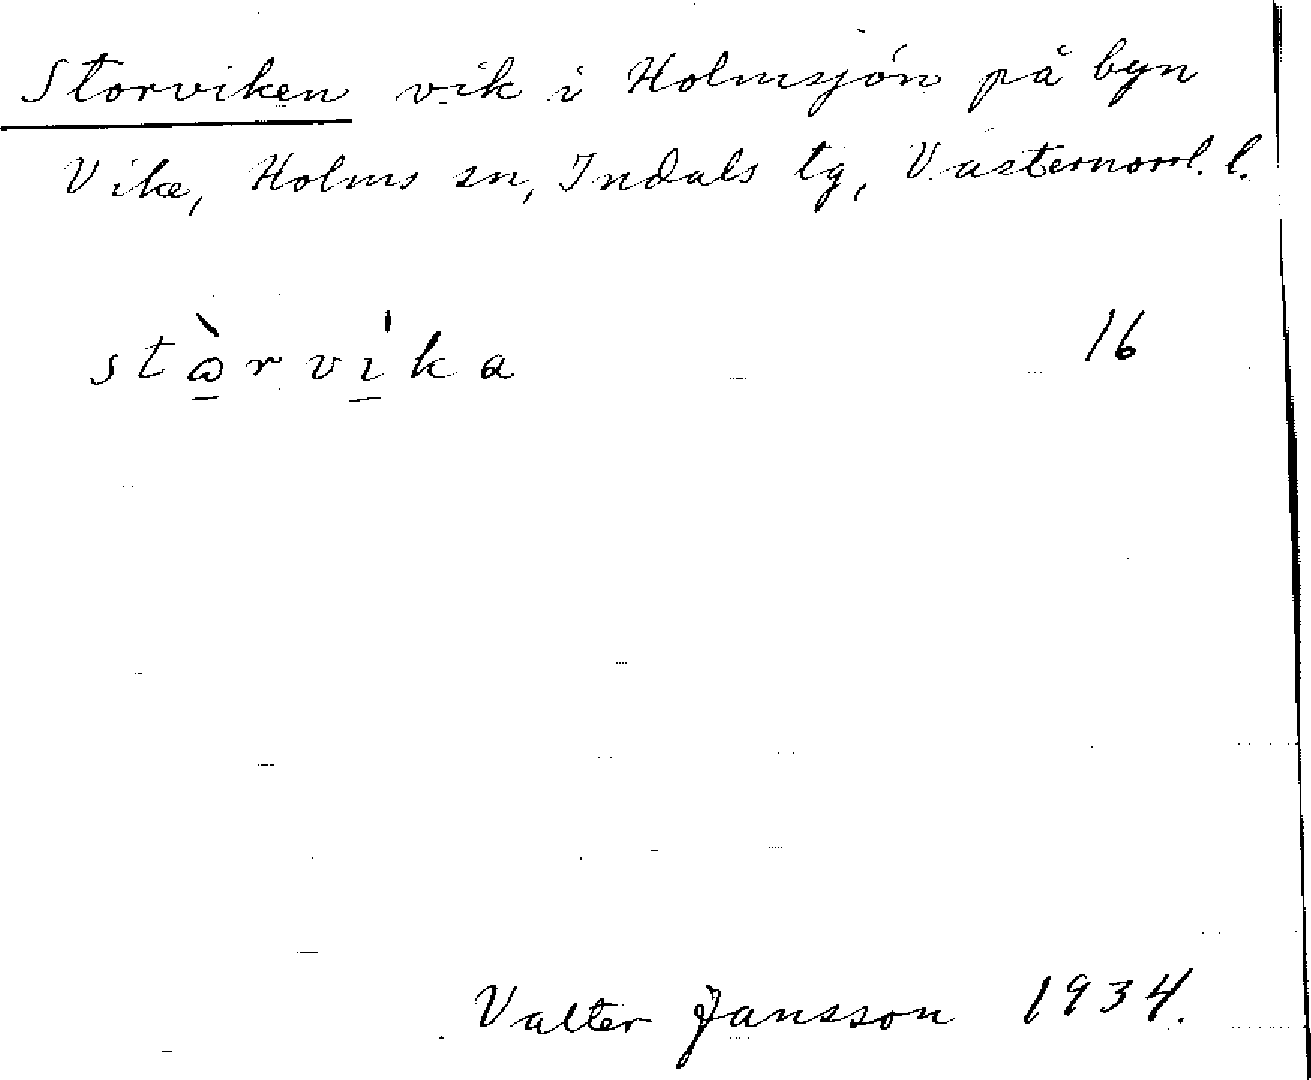 Storviken vik i Holmsjön på byn
Vike, Holms sn, Indals tg, Västernorrl. l.
stɷ̠̀rvı̠́ka 16
Valter Jansson 1934.